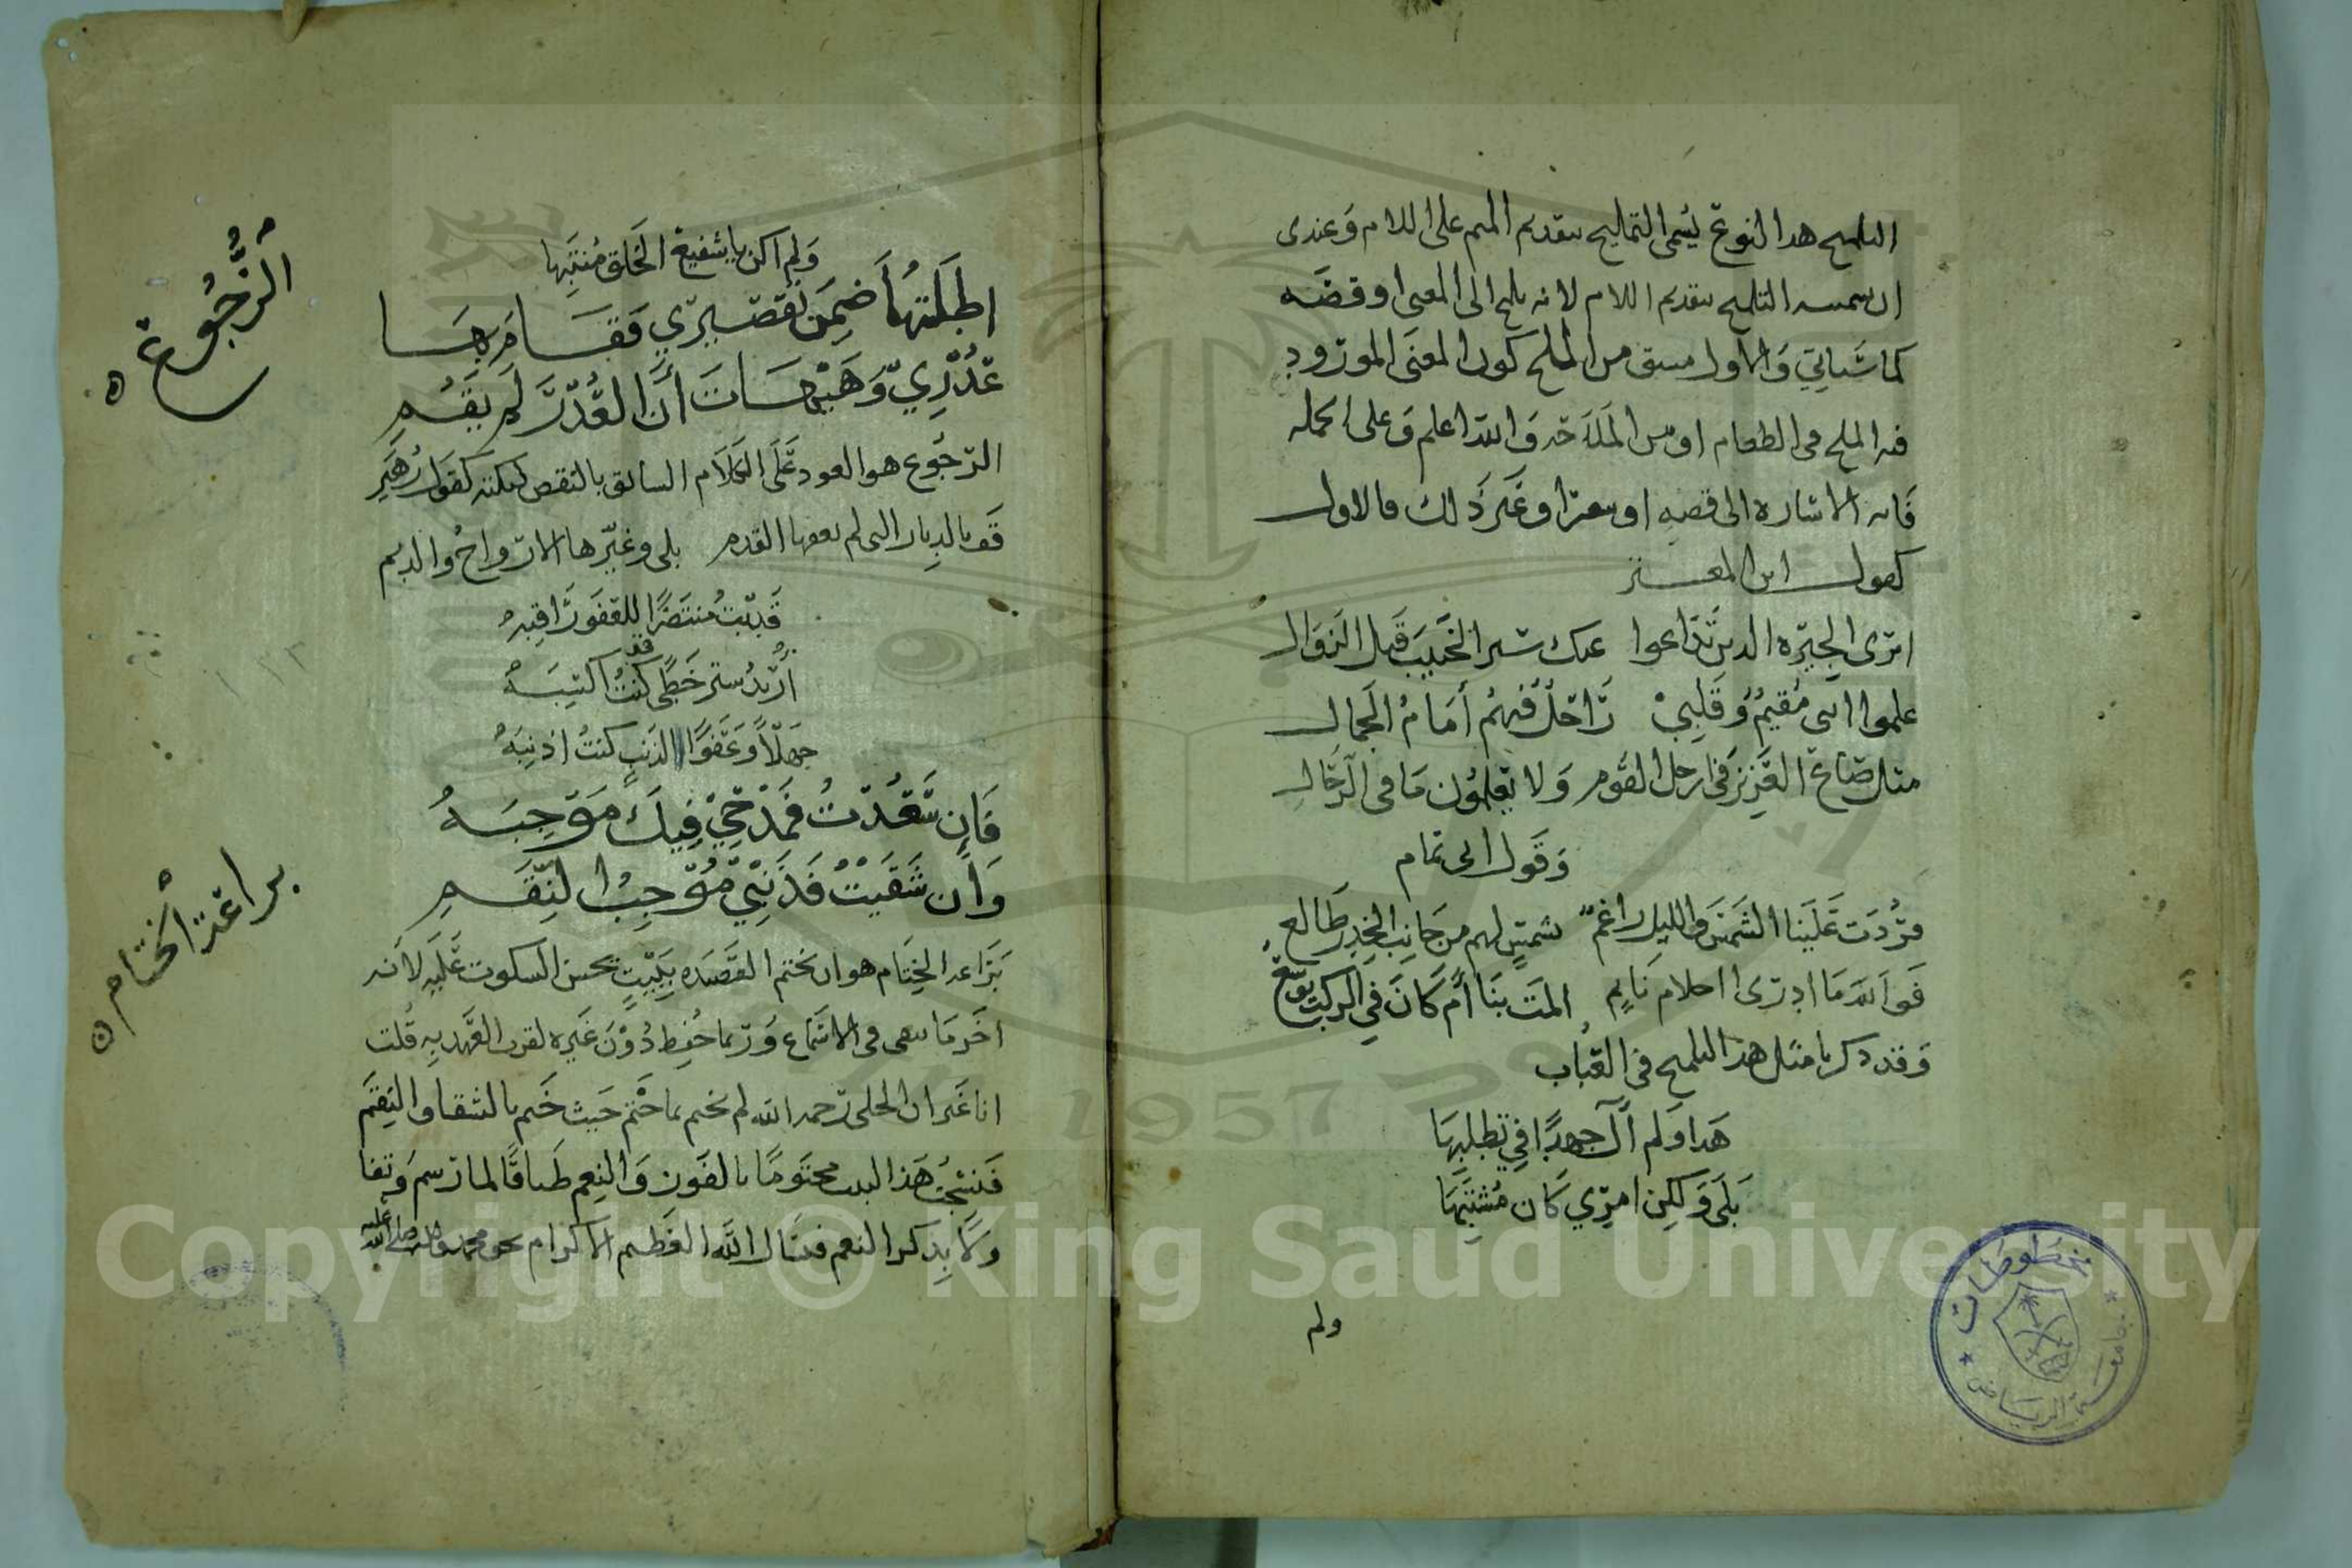 التلميح هذا النوع يُسمى التمليح بتقديم الميم على اللام وَعندى
ان سميه التلميح بتقديم اللام لانه يلمح الى المعنى او قصَه
كما سَياتي وَالاول مشتق من الملح كون المعنَى المورود
فيه الملح فى الطعام او من المَلَاحَه وَالله اعلم وَعلى كل حاله
فَانه الاشاره الى قصه او شعر او غَير ذَلك فالاول
كقول ابن المعتز
اترى الجِيَره الذين تَدَاعوا عند سَير الحَبيبَ قَبل الزوَال
علموا اننى مُقيمُ وَ قَلبِيْ رَاحَلُ فيهُم أمَامُ الجمال
مثل صَاعَ العَزِيز فى ارحل القوم وَلا يَعلمُون مَا فى الرحَالِ
وَقول ابى تمام
فرُدَت عَلَينا الشَمسَ والليل راغم بشمسٍ لهم من جَانب الخِدرِ طَالع
فَوَ الله مَا ادرى احلام نَايم المَت بنَا أم كَانَ في الركبِ يوشع
وَقد ذكرنا مثل هذا التلميح فى العتاب
هَذا وَلم أَل جهدًا في تطلبِهَا
بَلَى وَلكِن امرِي كَان مُشتبِهَا
ولم
وَلم اكن يا شفيعَ الخَلق مُنتَبِهَا
اطَلتهُا ضِمنَ تَقصيرِي فَقَامَ بِهَا
عُذرِيّ وَهَيهَاتَ أنَّ العُذرَ لَم يَقُمِ
الرُّجُوع ۞
الرّجُوع هو العود عَلَى الكَلَام السابق بالنقص لنكته كقَول زُهَير
قَف بالدِيار التى لم يعفها القدم بلى وغيّرها الارواحُ والديم
قَد بّتُ مُنتَضرًا للعَفو رَاقبهُ
أرُيدُ ستر خَطًى قد كنتُ اكتسبَهُ
جَهلاً وَعَفوًا الذنب كنتُ اذنِبَهُ
فَإن سَعدْتُ فمَدْحِيْ فِيكَ مَوْجِبَهُ
وَان شَقَيْتُ فَذَنِبْيْ مُوْجِبُ النِقَمِ
براعة اختام ۞
بَرَاعه الخِتَام هو ان تختم القصَيده ببَيْتٍ يحسن السكوت عَلَيه لانه
اخَر مَا يبقى فى الاسَماع وَربما حُفِظ دُوْنَ غَيره لقرب العَهد بِهِ قُلت
انا غَير ان الحلى رَحمه الله لم يختم بما خُتم حَيث خَتم بالشقا والنِقَم
فَنتِجُت هَذا البيت مختوُمًا بالفَوز وَالنِعم طَباقًا لما رَسم وَتفا
ولًا بِذكر النعم فنسَال الله العَظيم الاكرام بحق محمد واله صلى الله عليه
مخطوطات
جامعة الرياض
Copyright © King Saud University
1957